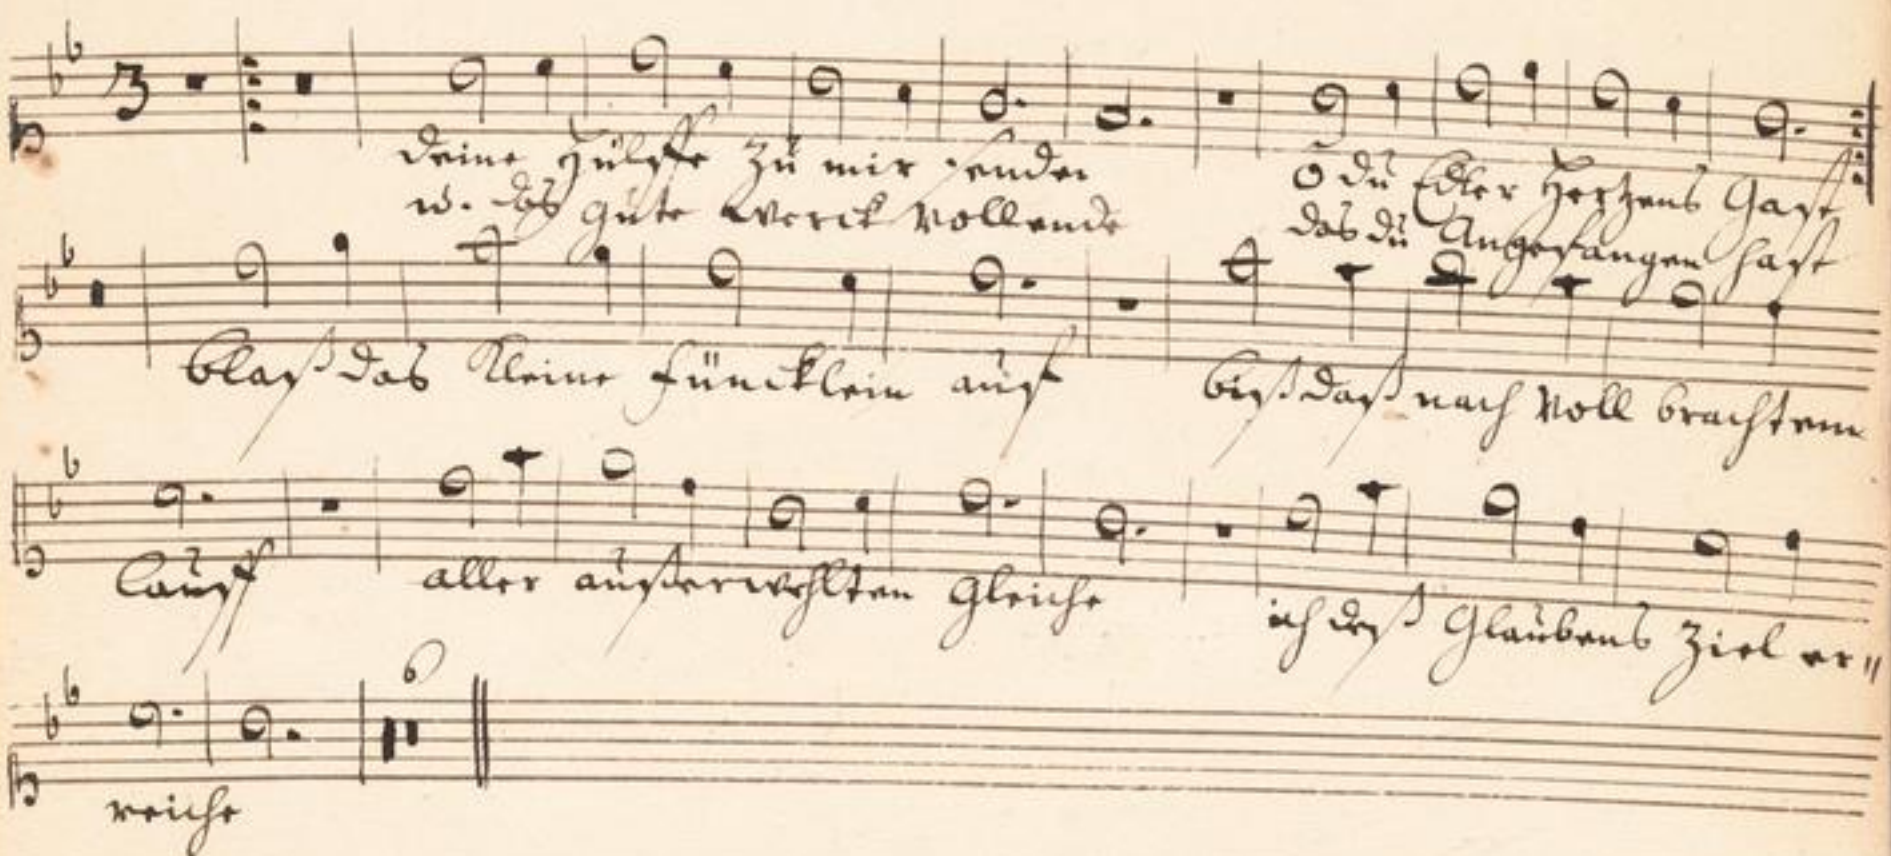 3
deine Hülffe zu mir sende O du Edler Hertzens Gast
u. das gute Werck vollende das du Angefangen hast
blaß das Kleine füncklein auf biß daß nach Voll brachtem
lauff aller außerwehlten Gleiche ich deß Glaubens Ziel er⸗
6
reiche